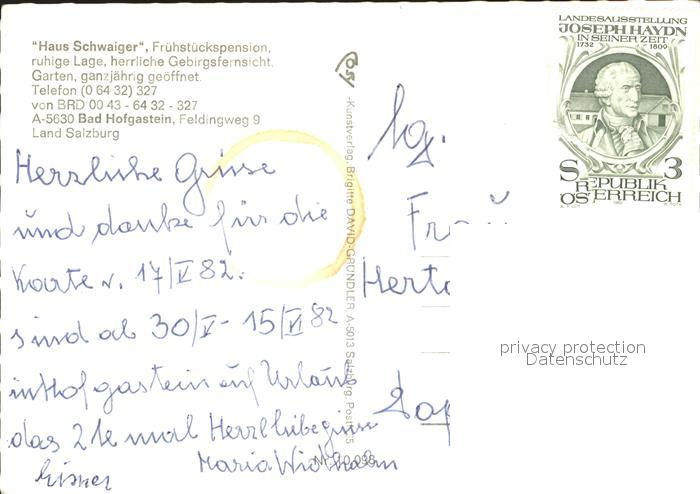 "Haus Schwaiger", Frühstückspension,
ruhige Lage, herrliche Gebirgsfernsicht.
Garten, ganzjährig geöffnet.
Telefon (0 64 32) 327
von BRD 00 43 - 64 32 - 327
A-5630 Bad Hofgastein, Feldingweg 9
Land Salzburg
Herzliche Grüsse
und danke für die
Karte v. 17/V 82.
sind ab 30/V - 15/VI 82
in Hofgastein auf Urlaub
das 2te mal Herzliche grüsse
Maria
-Kunstverlag, Brigitte DAVID-GRÜNDLER A-5013 Salzburg, Postf.
LANDESAUSSTELLUNG
JOSEPH HAYDN
IN SEINER ZEIT
1732 1809
S 3
REPUBLIK
ÖSTERREICH
privacy protection
Datenschutz